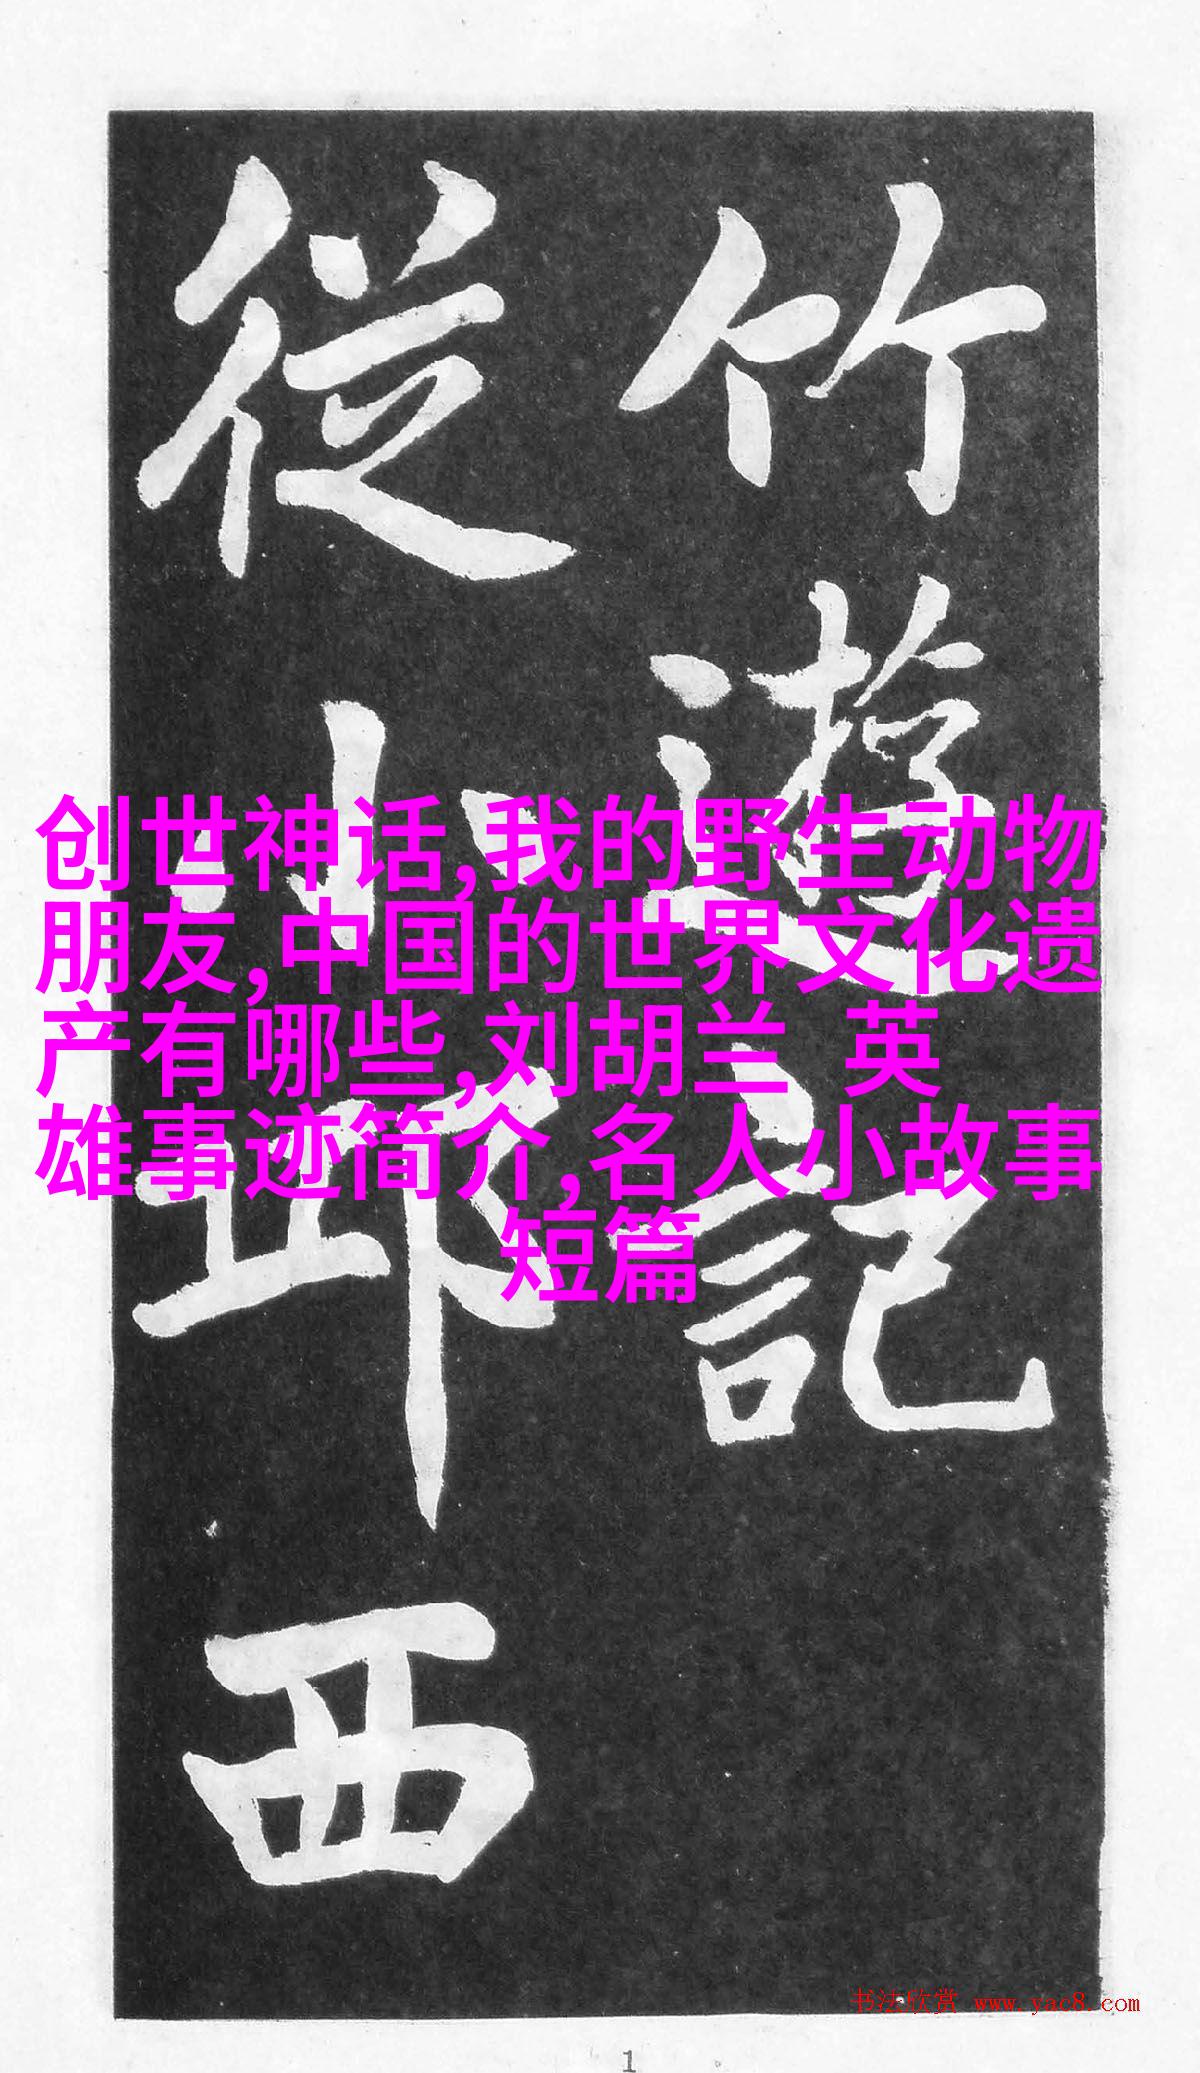 竹遊記
從小丘西
创世神话,我的野生动物
朋友,中国的世界文化遗
产有哪些,刘胡兰 英
雄事迹简介,名人小故事
短篇
书法欣赏 www.yac8.com
1